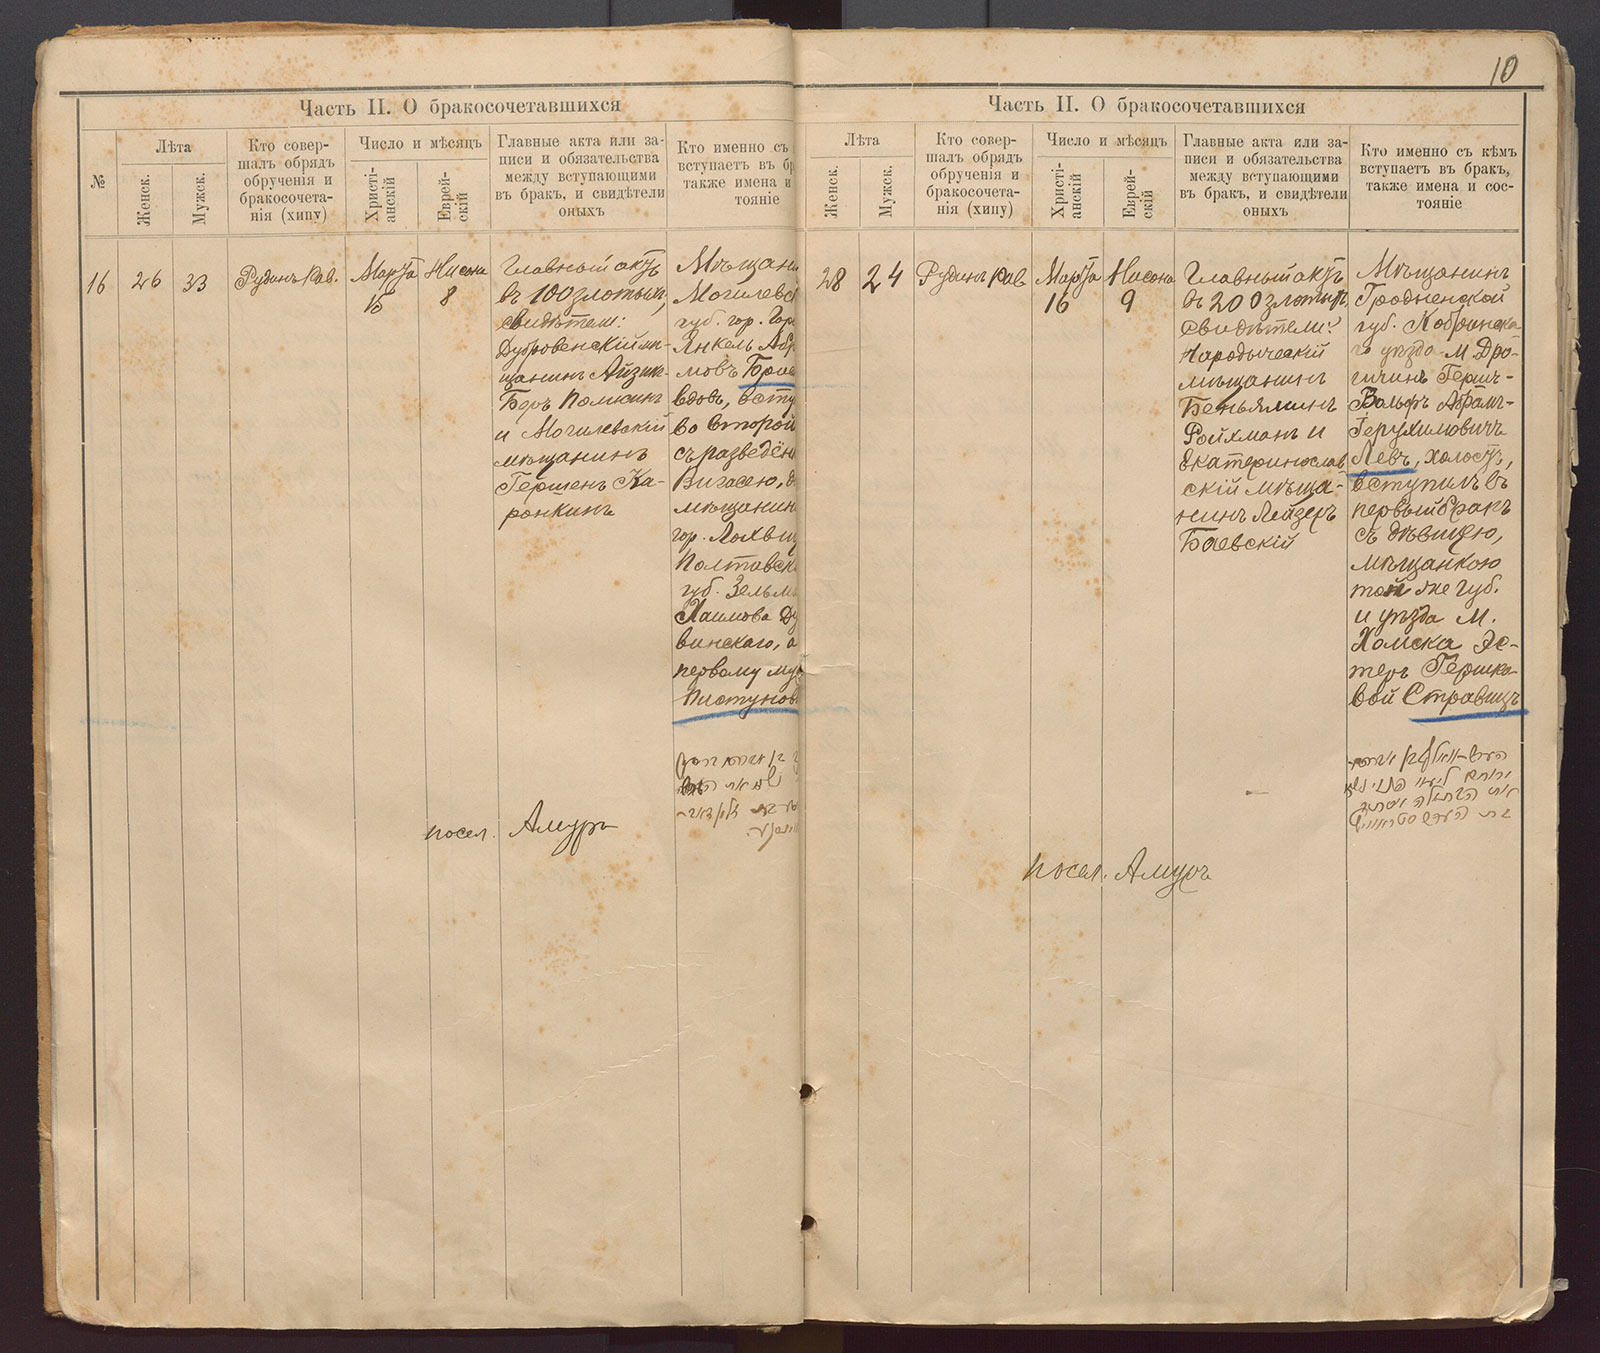 10
Часть II. О бракосочетавшихся
№
Лѣта
Женск.
Мужск.
Кто совер-
шалъ обрядъ
обрученія и
бракосочета-
нія (хипу)
Число и мѣсяцъ
Христі-
анскій
Еврей-
скій
Главные акта или за-
писи и обязательства
между вступающими
въ бракъ, и свидѣтели
оныхъ
Кто именно съ
вступаетъ въ бр
также имена и
тояніе
16
26
33
Рудинъ Рав.
Марта
15
Нисона
8
Главный актъ
въ 100 злотыхъ,
свидѣтели:
Дубровенскій мѣ-
щанинъ Айзик-
Беръ Полисинъ
и Могилевскій
мѣщанинъ
Гершенъ Ка-
ронкинъ
Мѣщани
Могилевс
губ. гор. Гор
Янкель Абр
мовъ
вдовъ, всту
во второй
съ разведён
мѣщанин
гор. Лохвиц
Полтавск
губ. Зельм
Хаимова Ду
винскаго, а
первому му
Пистунов
посел. Амуръ
Часть II. О бракосочетавшихся
Лѣта
Женск.
Мужск.
Кто совер-
шалъ обрядъ
обрученія и
бракосочета-
нія (хипу)
Число и мѣсяцъ
Христі-
анскій
Еврей-
скій
Главные акта или за-
писи и обязательства
между вступающими
въ бракъ, и свидѣтели
оныхъ
Кто именно съ кѣмъ
вступаетъ въ бракъ,
также имена и сос-
тояніе
28
24
Рудинъ Рав
Марта
16
Нисона
9
Главный актъ
въ 200 злотых,
свидѣтели:
Народыческій
мѣщанинъ
Беньяминъ
Ройхманъ и
Екатеринослав
скій мѣща-
нинъ Лейзеръ
Баевскій
Мѣщанинъ
Гродненской
губ. Кобринска-
го уѣзда М Дро-
гичинъ Герш-
Вольфъ Абрам-
Герухимовичъ
Левъ, холостъ,
вступилъ въ
первый бракъ
съ дѣвицею,
мѣщанкою
той же губ.
и уѣзда М.
Хомска Эс-
теръ Гершко-
вой Стравицъ
посел. Амуръ